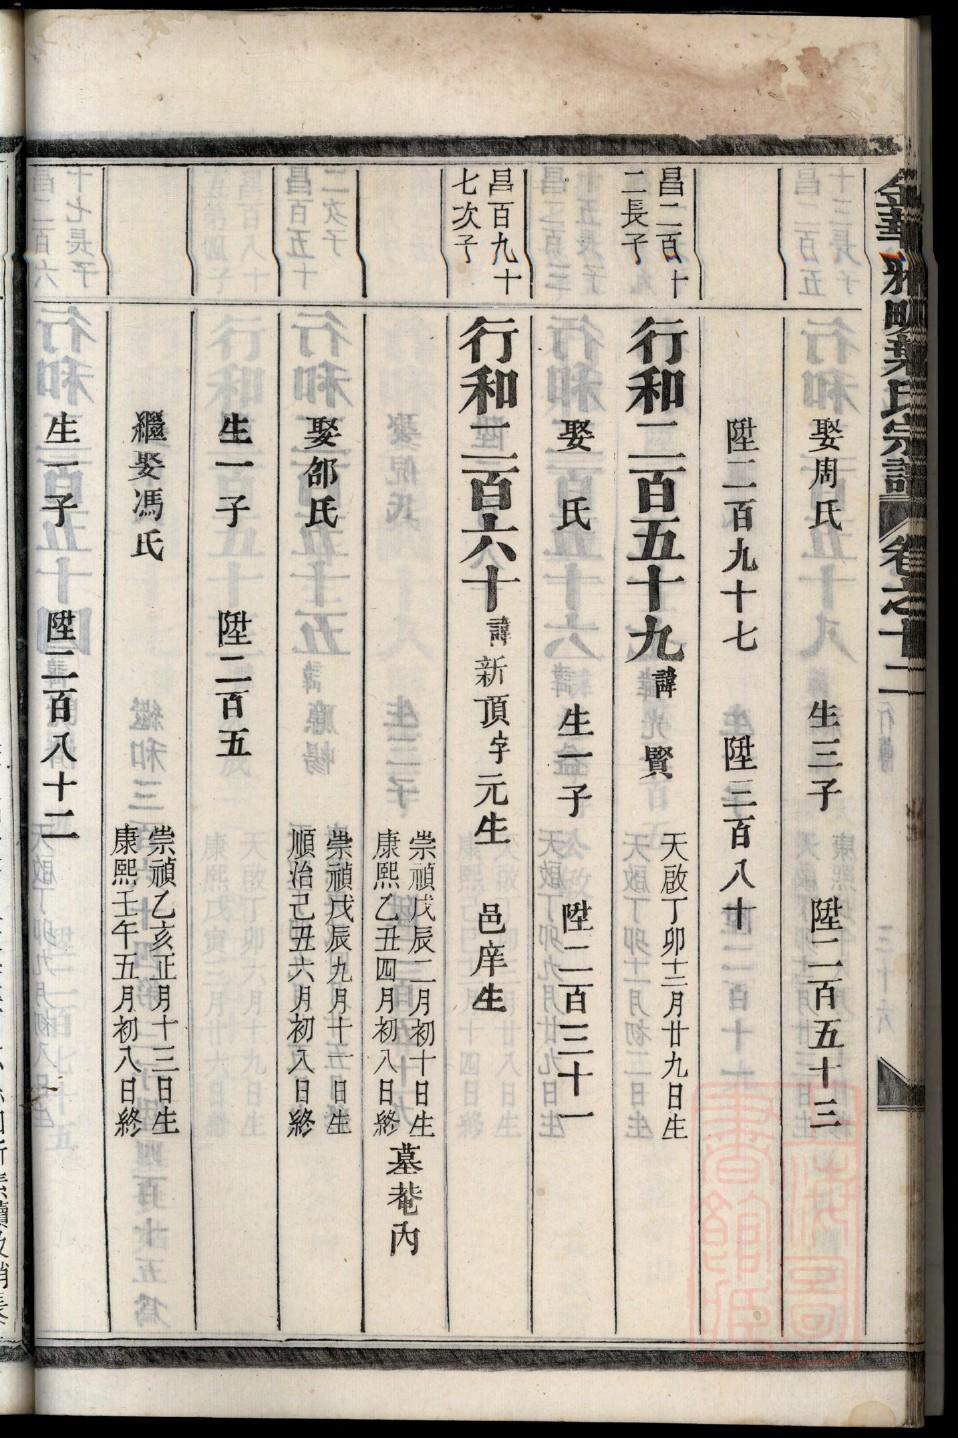 娶周氏 生三子 陞二百五十三
陞二百九十七 陞三百八十
昌二百十
二長子
行和二百五十九 諱光賢 天啟丁卯十二月廿九日生
娶 氏 生一子 陞二百三十一
昌百九十
七次子
行和二百六十 諱新頂字元生 邑庠生
崇禎戊辰二月初十日生
康熙乙丑四月初八日終
墓菴內
娶邰氏
崇禎戊辰九月十一日生
順治己丑六月初八日終
生一子 陞二百五
繼娶馮氏
崇禎乙亥正月十三日生
康熙壬午五月初八日終
生一子 陞二百八十二